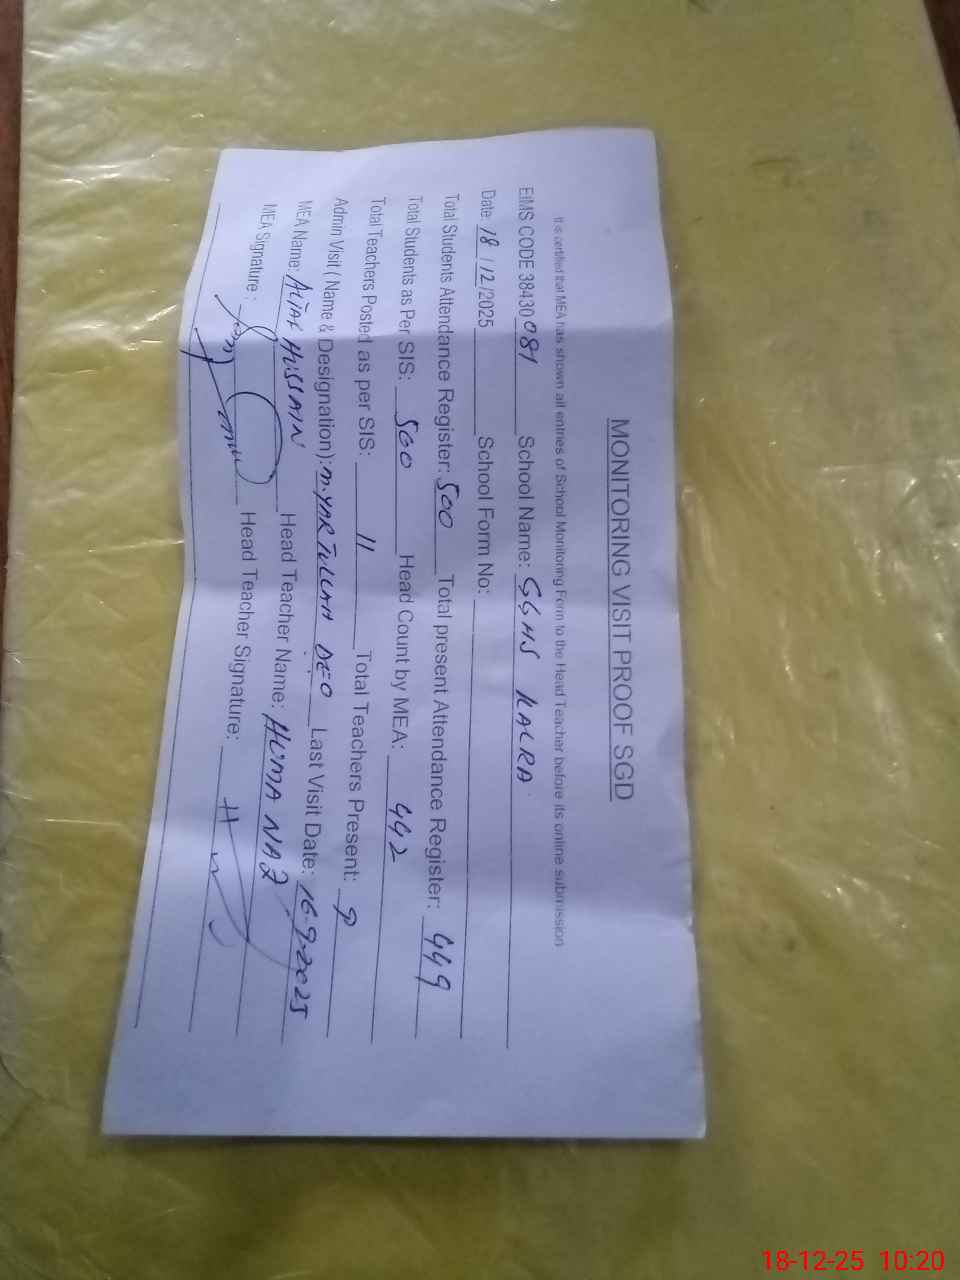 MONITORING VISIT PROOF SGD
It is certified that MEA has shown all entries of School Monitoring Form to the Head Teacher before its online submission
EIMS CODE 38430081 School Name: GGHS KALRA
Date: 18/12/2025 School Form No:
Total Students Attendance Register: 500 Total present Attendance Register: 449
Total Students as Per SIS: 500 Head Count by MEA: 442
Total Teachers Posted as per SIS: 11 Total Teachers Present: 9
Admin Visit ( Name & Designation): DEO Last Visit Date: 16-9-2025
MEA Name: ALTAF HUSSAIN Head Teacher Name: HUMA NAZ
MEA Signature : Head Teacher Signature:
18-12-25 10:20